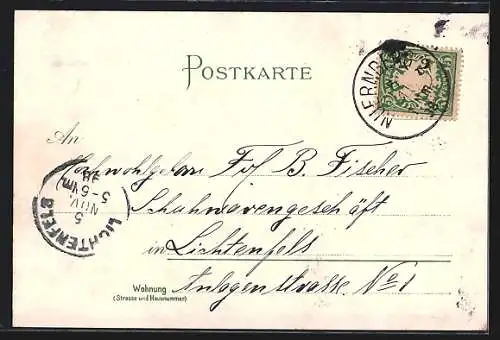 POSTKARTE
NUERNBE
An
Hochwohlgeboren Frl B. Fischer
Schuhwarengeschäft
in Lichtenfels
Anlagenstrasse No 1
Wohnung
(Strasse und Hausnummer)
LICHTENFELS
5
NOV.
5-6 NM.
98